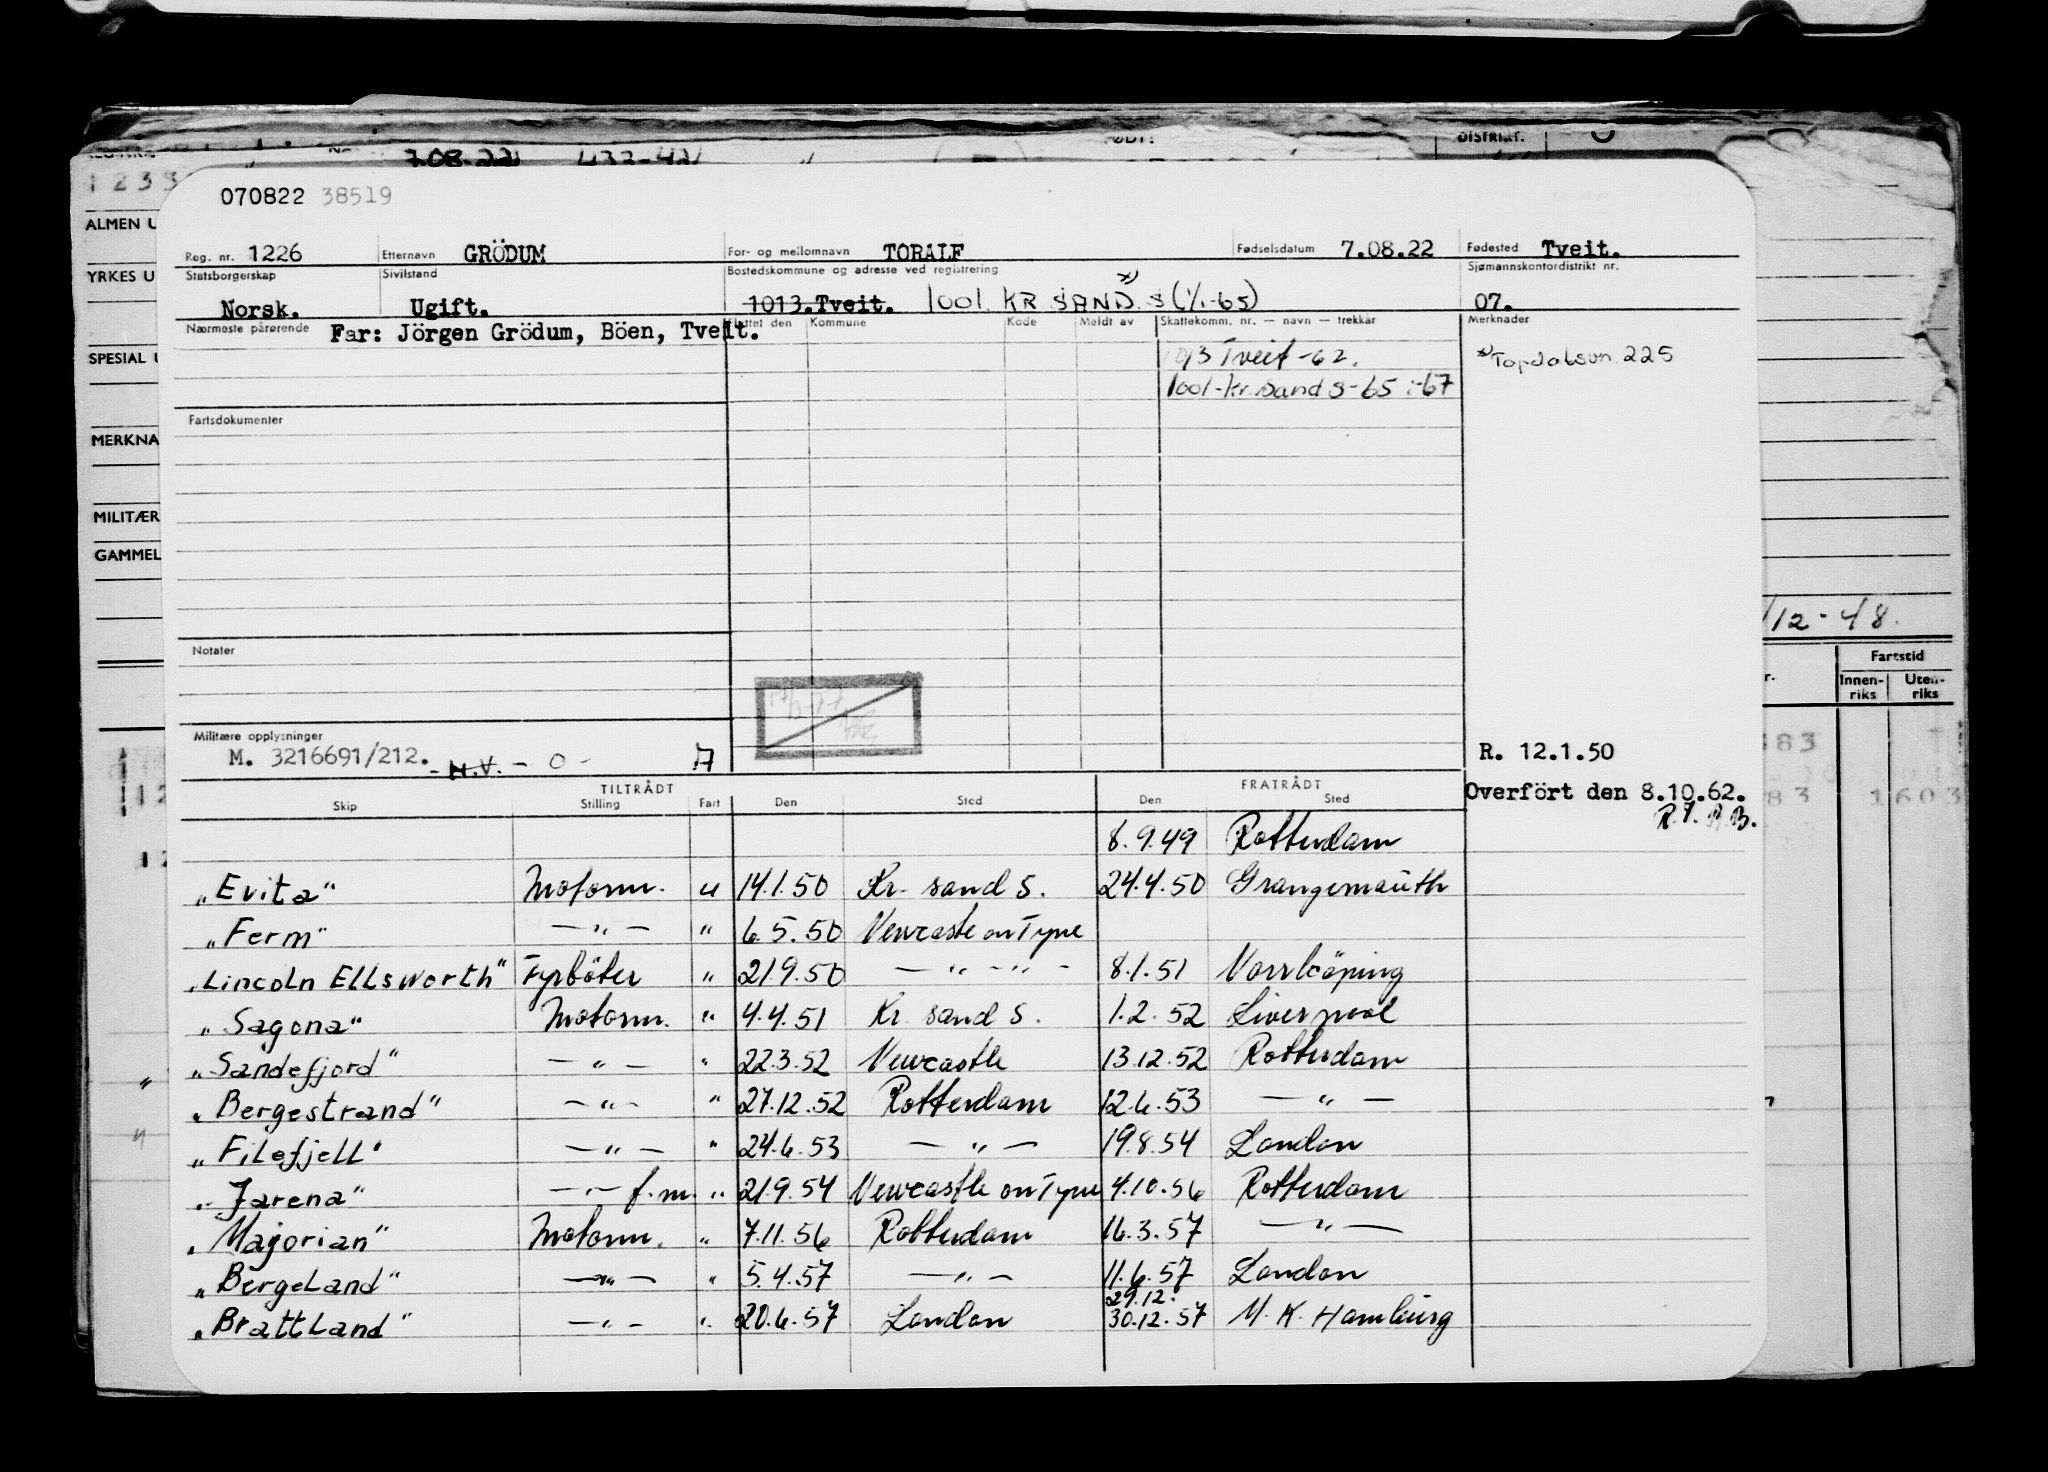 ØDT:
DISTRIKT.
7.08.22 433-42
1 2 3 3
ALMEN U
YRKES U
SPESIAL U
MERKNA
MILITÆR
GAMMEL
070822 38519
Reg. nr. 1226 Etternavn GRÖDUM For- og mellomnavn TORALF Fødselsdatum 7.08.22 Fødested Tveit.
Statsborgerskap Sivilstand Bostedskommune og adresse ved registrering Sjømannskontordistrikt nr.
Norsk. Ugift. 1013.Tveit. 1001 KR SAND. S x) (1/1-65) 07.
Nærmeste pårørende Far: Jörgen Grödum, Böen, Tveit. Flyttet den Kommune Kode Meldt av Skattekomm. nr. — navn — trekkår Merknader
1013 Tveit -62. x) Topdalsvn. 225
1001-kr.sand S-65 -67
Fartsdokumenter
/12-48.
Notater
Fartstid
r. Innen-riks Uten-riks
Militære opplysninger
M. 3216691/212. - H.V. - 0 - A R. 12.1.50
TILTRÅDT FRATRÅDT
Skip Stilling Fart Den Sted Den Sted Overfört den 8.10.62.
8.9.49 Rotterdam
"Evita" Motorm. u 14.1.50 Kr. sand S. 24.4.50 Grangemouth
"Ferm" — " — " 6.5.50 Newcastle on Tyne
"Lincoln Ellsworth" Fyrböter " 21.9.50 — " — " — 8.1.51 Norrköping
"Sagona" Motorm. " 4.4.51 Kr. sand S. 1.2.52 Liverpool
"Sandefjord" — " — " 22.3.52 Newcastle 13.12.52 Rotterdam
"Bergestrand" — " — " 27.12.52 Rotterdam 12.6.53 — " —
"Filefjell" — " — " 24.6.53 — " — 19.8.54 London
"Jarena" — " — f.m. " 21.9.54 Newcastle on Tyne 4.10.56 Rotterdam
"Majorian" Motorm. " 7.11.56 Rotterdam 16.3.57 — " —
"Bergeland" — " — " 5.4.57 — " — 11.6.57 London
29.12.
"Brattland" — " — " 20.6.57 London 30.12.57 M.K. Hamburg